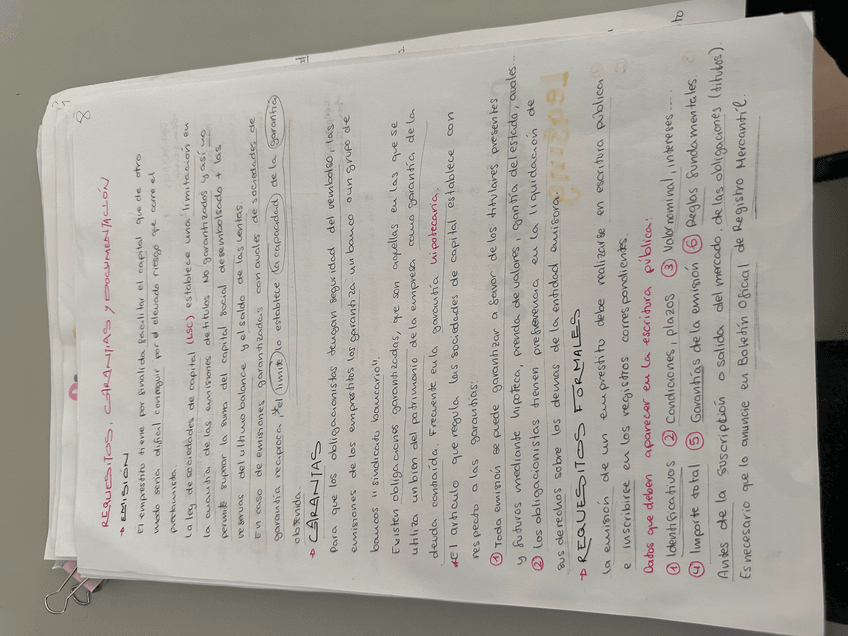 8
REQUESITOS, GARANTIAS Y DOCUMENTACIÓN
→ EMISIÓN
El emprestito tiene por finalida facilitar el capital que de otro
modo seria dificil conseguir por el elevado riesgo que corre el
prestamista.
La ley de sociedades de capital (LSC) establece una limitación en
la cuantia de las emisiones de titulos No garantizados y así no
permite superar la suma del capital social desembolsado + las
reservas del ultimo balance y el saldo de las ventas
En caso de emisiones garantizadas con avales de sociedades de
garantia reciproca, *el limite lo establece la capacidad de la garantia
obtenida.
→ GARANTIAS
Para que los obligacionistas tengan seguridad del rembolso, las
emisiones de los emprestitos los garantiza un banco o un grupo de
bancos "sindicato bancario".
Existen obligaciones garantizados, que son aquellas en las que se
utiliza un bien del patrimonio de la empresa como garantia de la
deuda contraida. Frecuente en la garantia hipotecaria.
*El articulo que regula las sociedades de capital establece con
respecto a las garantias:
① Toda emisión se puede garantizar a favor de los titulares presentes
y futuros mediante hipoteca, prenda de valores, garantia del estado, avales...
② Los obligacionistas tienen preferencia en la liquidación de
sus derechos sobre los demas de la entidad emisora
→ REQUESITOS FORMALES
la emisión de un emprestito debe realizarse en escritura publica
e inscribirse en los registros correspondientes.
Datos que deben aparecer en la escritura pública:
① Identificativos ② Condiciones, plazos ③ Valor nominal, intereses....
④ Importe total ⑤ Garantias de la emisión ⑥ Reglas fundamentales.
Antes de la suscripción o salida del mercado, de las obligaciones (titulos).
Es necesario que lo anuncie en Boletin Oficial de Registro Mercantil.